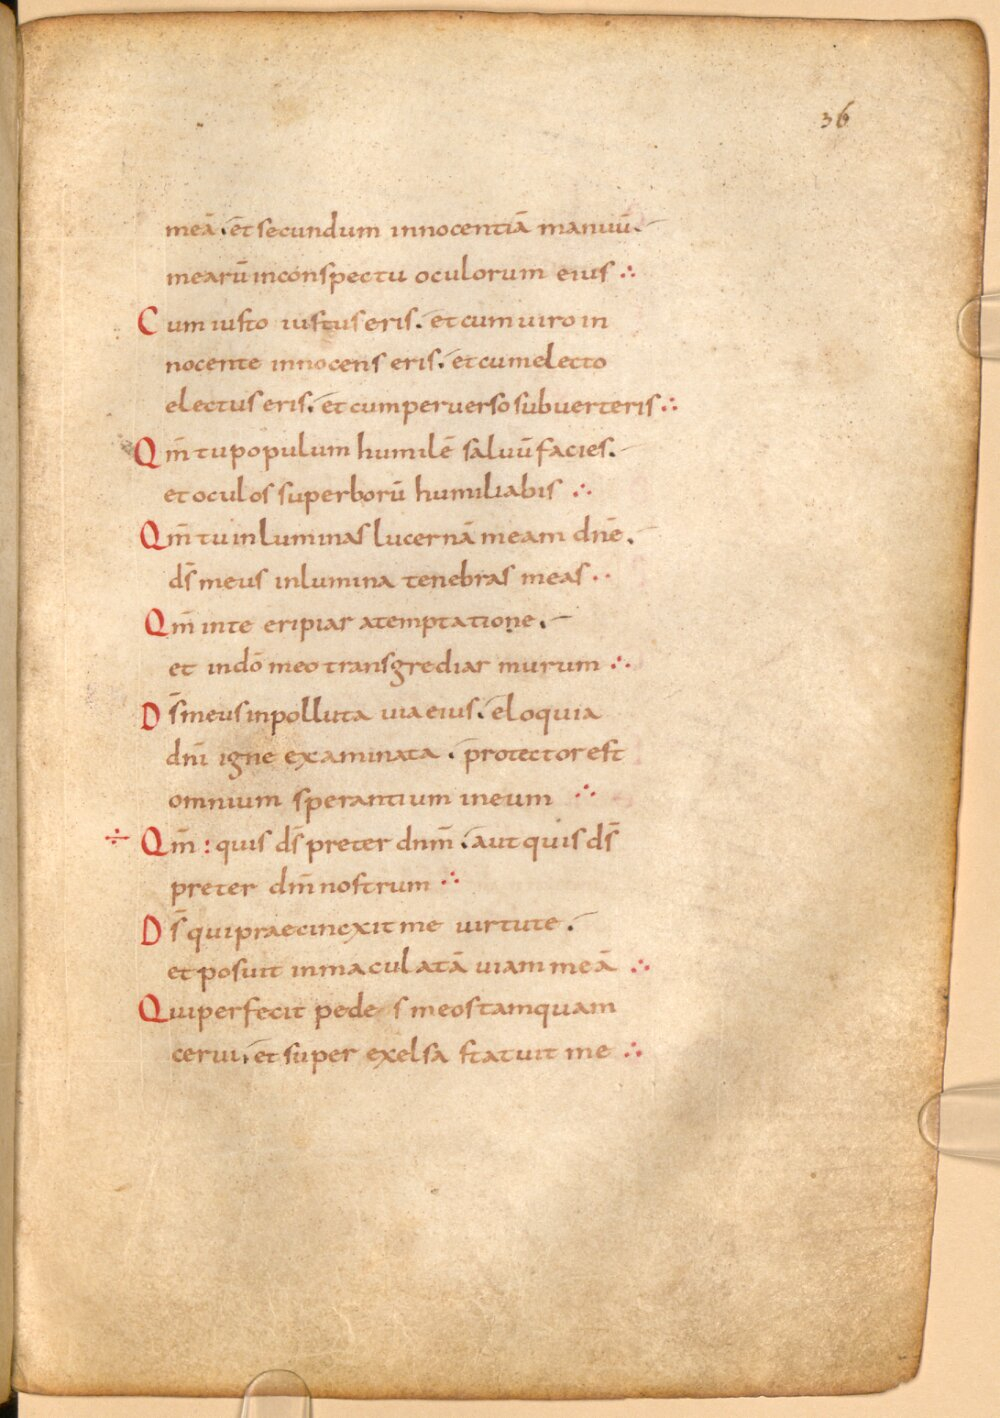 36
meā. et secundum innocentiā manuū.
mearū inconspectu oculorum eius ∴
Cum iusto iustus eris. et cum uiro in
nocente innocens eris. et cum electo
electus eris. et cum peruerso subuerteris ∴
Qm̄ tu populum humilē saluū facies.
et oculos superborū humiliabis ∴
Qm̄ tu inluminas lucernā meam dn̄e.
ds̄ meus inlumina tenebras meas ∴
Qm̄ in te eripiar a temptatione.
et in dō meo transgrediar murum ∴
Ds̄ meus inpolluta uia eius. eloquia
dn̄i igne examinata. protector est
omnium sperantium in eum ∴
÷ Qm̄ : quis ds̄ preter dnm̄. aut quis ds̄
preter dm̄ nostrum ∴
Ds̄ qui praecincxit me uirtute.
et posuit inmaculatā uiam meā ∴
Qui perfecit pedes meos tamquam
cerui. et super exelsa statuit me ∴